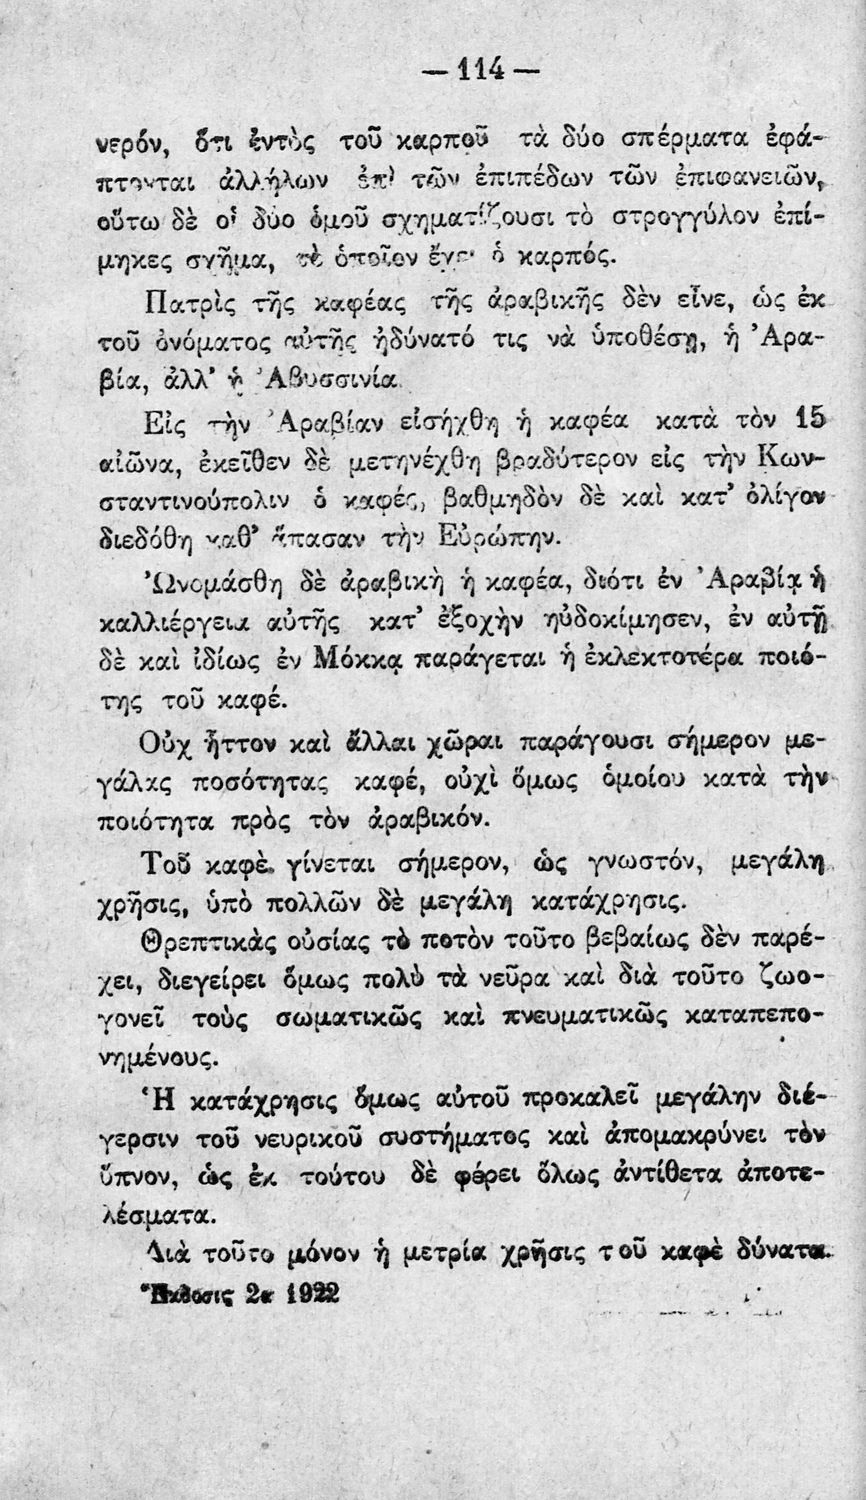 — 114 —
νερόν, ὅτι ἐντὸς τοῦ καρποῦ τὰ δύο σπέρματα ἐφά-
πτονται ἀλλήλων ἐπὶ τῶν ἐπιπέδων τῶν ἐπιφανειῶν,
οὕτω δὲ οἱ δύο ὁμοῦ σχηματίζουσι τὸ στρογγύλον ἐπί-
μηκες σχῆμα, τὸ ὁποῖον ἔχει ὁ καρπός.
Πατρὶς τῆς καφέας τῆς ἀραβικῆς δὲν εἶνε, ὡς ἐκ
τοῦ ὀνόματος αὐτῆς ἠδύνατό τις νὰ ὑποθέσῃ, ἡ Ἀρα-
βία, ἀλλ' ἡ Ἀβυσσινία.
Εἰς τὴν Ἀραβίαν εἰσήχθη ἡ καφέα κατὰ τὸν 15
αἰῶνα, ἐκεῖθεν δὲ μετηνέχθη βραδύτερον εἰς τὴν Κων-
σταντινούπολιν ὁ καφές, βαθμηδὸν δὲ καὶ κατ' ὀλίγον
διεδόθη καθ' ἅπασαν τὴν Εὐρώπην.
Ὠνομάσθη δὲ ἀραβικὴ ἡ καφέα, διότι ἐν Ἀραβίᾳ ἡ
καλλιέργεια αὐτῆς κατ' ἐξοχὴν ηὐδοκίμησεν, ἐν αὐτῇ
δὲ καὶ ἰδίως ἐν Μόκκᾳ παράγεται ἡ ἐκλεκτοτέρα ποιό-
της τοῦ καφέ.
Οὐχ ἧττον καὶ ἄλλαι χῶραι παράγουσι σήμερον με-
γάλας ποσότητας καφέ, οὐχὶ ὅμως ὁμοίου κατὰ τὴν
ποιότητα πρὸς τὸν ἀραβικόν.
Τοῦ καφὲ γίνεται σήμερον, ὡς γνωστόν, μεγάλη
χρῆσις, ὑπὸ πολλῶν δὲ μεγάλη κατάχρησις.
Θρεπτικὰς οὐσίας τὸ ποτὸν τοῦτο βεβαίως δὲν παρέ-
χει, διεγείρει ὅμως πολὺ τὰ νεῦρα καὶ διὰ τοῦτο ζωο-
γονεῖ τοὺς σωματικῶς καὶ πνευματικῶς καταπεπο-
νημένους.
Ἡ κατάχρησις ὅμως αὐτοῦ προκαλεῖ μεγάλην διέ-
γερσιν τοῦ νευρικοῦ συστήματος καὶ ἀπομακρύνει τὸν
ὕπνον, ὡς ἐκ τούτου δὲ φέρει ὅλως ἀντίθετα ἀποτε-
λέσματα.
Διὰ τοῦτο μόνον ἡ μετρία χρῆσις τοῦ καφὲ δύναται
Ἔκδοσις 2α 1922